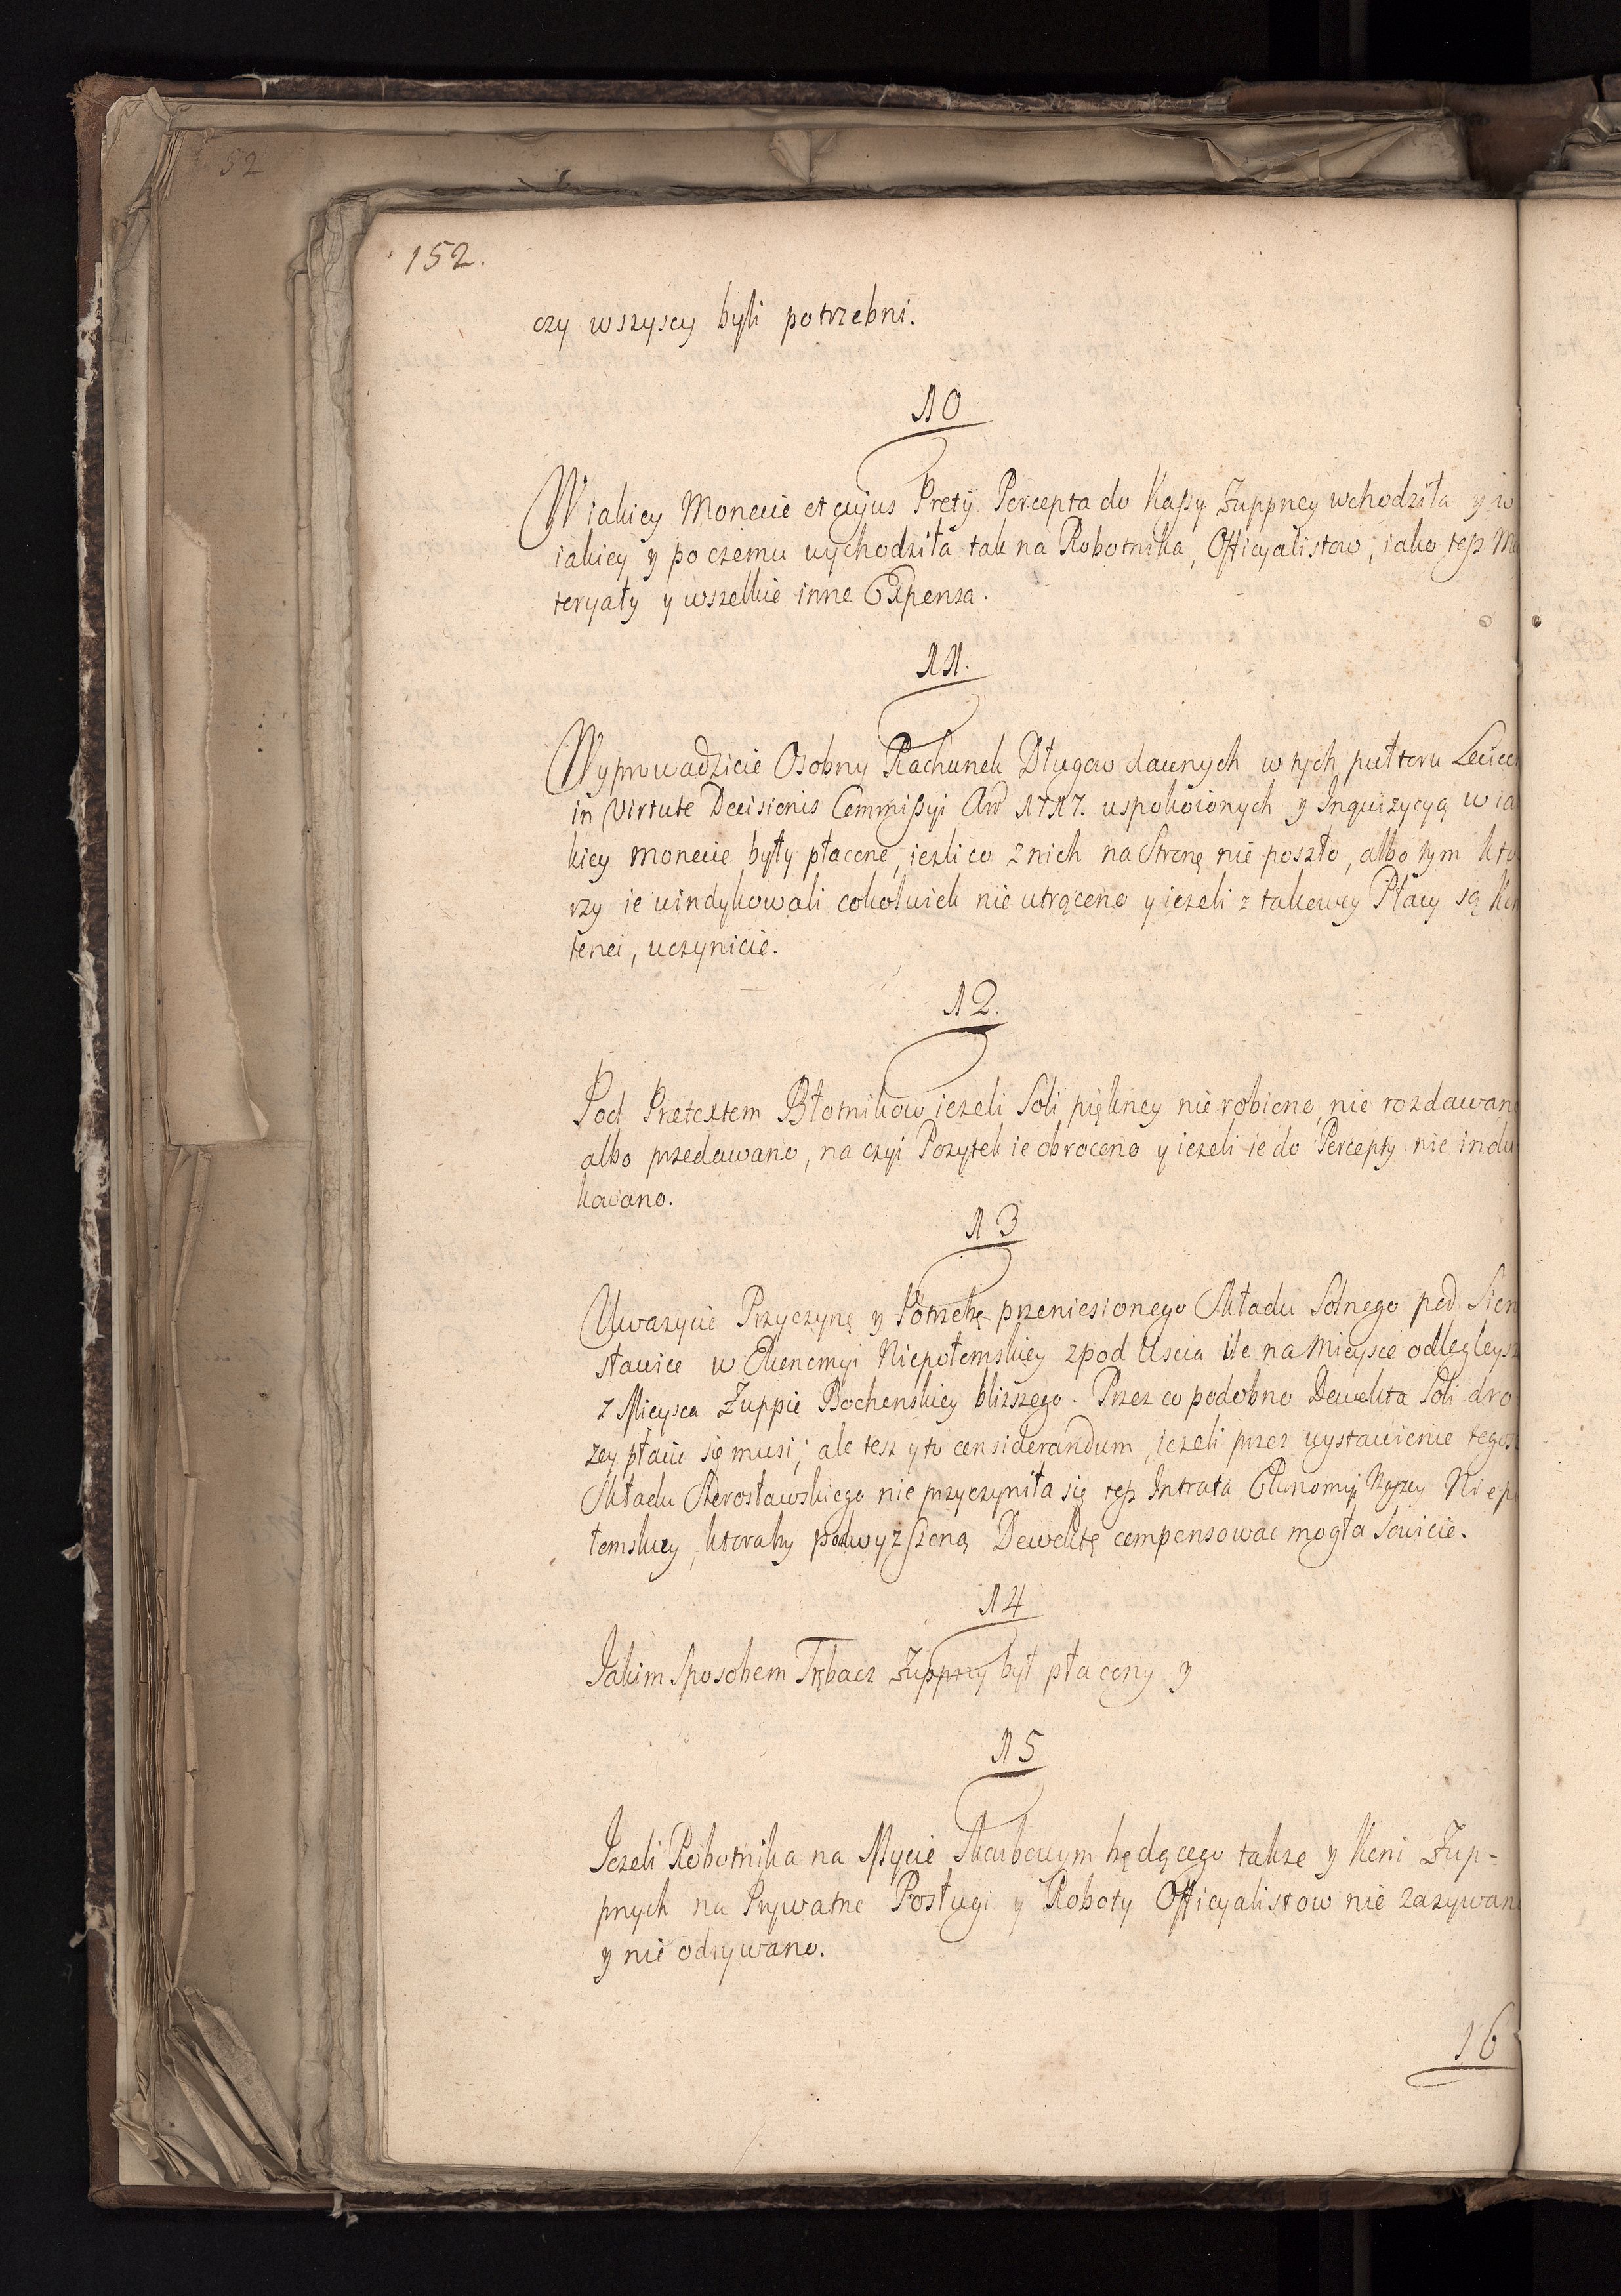 52
152.
czy wszyscy byli potrzebni.
10
W iakiey Monecie et cujus Pretij Percepta do Kassy Żuppney wchodziła y w
iakiey y po czemu wychodziła tak na Robotnika, Officyalistow, iako tesz Ma
teryały y wszelkie inne Expensa.
11.
Wyprowadzicie Osobny Rachunek Długow dawnych w tych pułtoru Leciech
in Virtute Decisionis Commissyi Anō 1717. uspokoionych y Inquizycyą w ia
kiey monecie były płacone, iezli co z nich na Stronę nie poszło, albo tym kto
rzy ie windykowali cokolwiek nie utrącono y iezeli z takowey Płacy są Kon
tenci, uczynicie.
12.
Pod Pretextem Błotnikow iezeli Soli piękney nie robiono, nie rozdawano
albo przedawano, na czyi Pozytek ie obrocono y iezeli ie do Percepty nie indu
kowano.
13
Uwazycie Przyczynę y Potrzebę przeniesionego Składu Solnego pod Siero
sławice w Ekonomyi Niepołomskiey zpod Uscia ile na Mieysce odlegleysze
z Mieysca Żuppie Bochenskiey bliższego. Przez co podobno Dewekta Soli dro
zey płacic się musi; ale tesz y to considerandum, iezeli przez wystawienie tegosz
Składu Sierosławskiego nie przyczyniła się tesz Intrata Ekonomyi Naszey Niepo
łomskiey, ktoraby podwyzszoną Dewektę compensowac mogła sowicie.
14
Jakim Sposobem Trębacz Żuppny był płacony y
15
Jezeli Robotnika na Mycie Skarbowym będącego takze y Koni Żup-
pnych na Prywatne Posługi y Roboty Officyalistow nie zazywano
y nie odrywano.
16